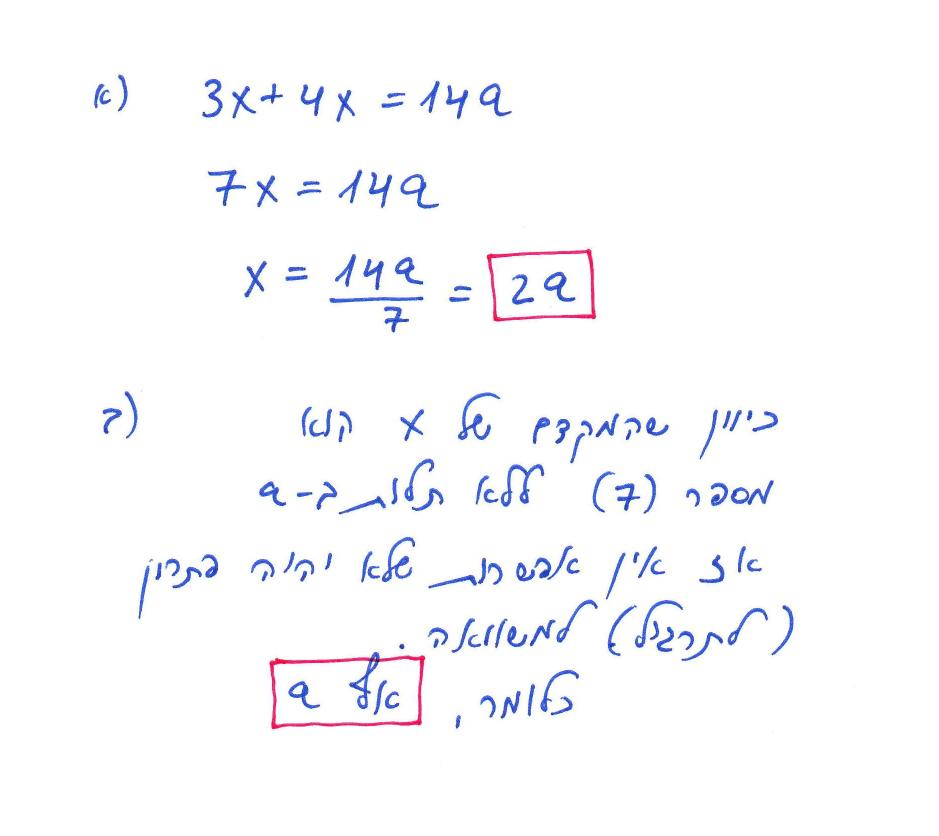 א) 3x + 4x = 14a
7x = 14a
x = 14a/7 = 2a
ב) כיוון שהמקדם של x הוא
מספר (7) ללא תלות ב-a
אז אין אפשרות שלא יהיה פתרון
(לתרגיל) למשוואה.
כלומר, אף a